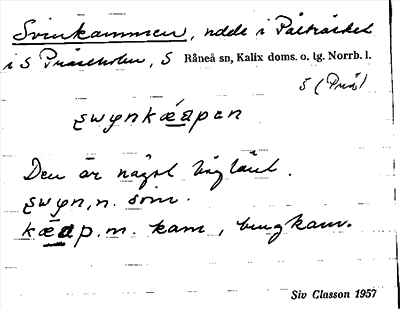 Svinkammen, udde i Påträsket
i S Prästholm, S Råneå sn, Kalix doms. o. tg. Norrb. l.
5 (Präs)
swynkæapen
Den är något höglänt.
swyn, n. svin.
kæap. m. kam, bergkam.
Siv Classon 1957